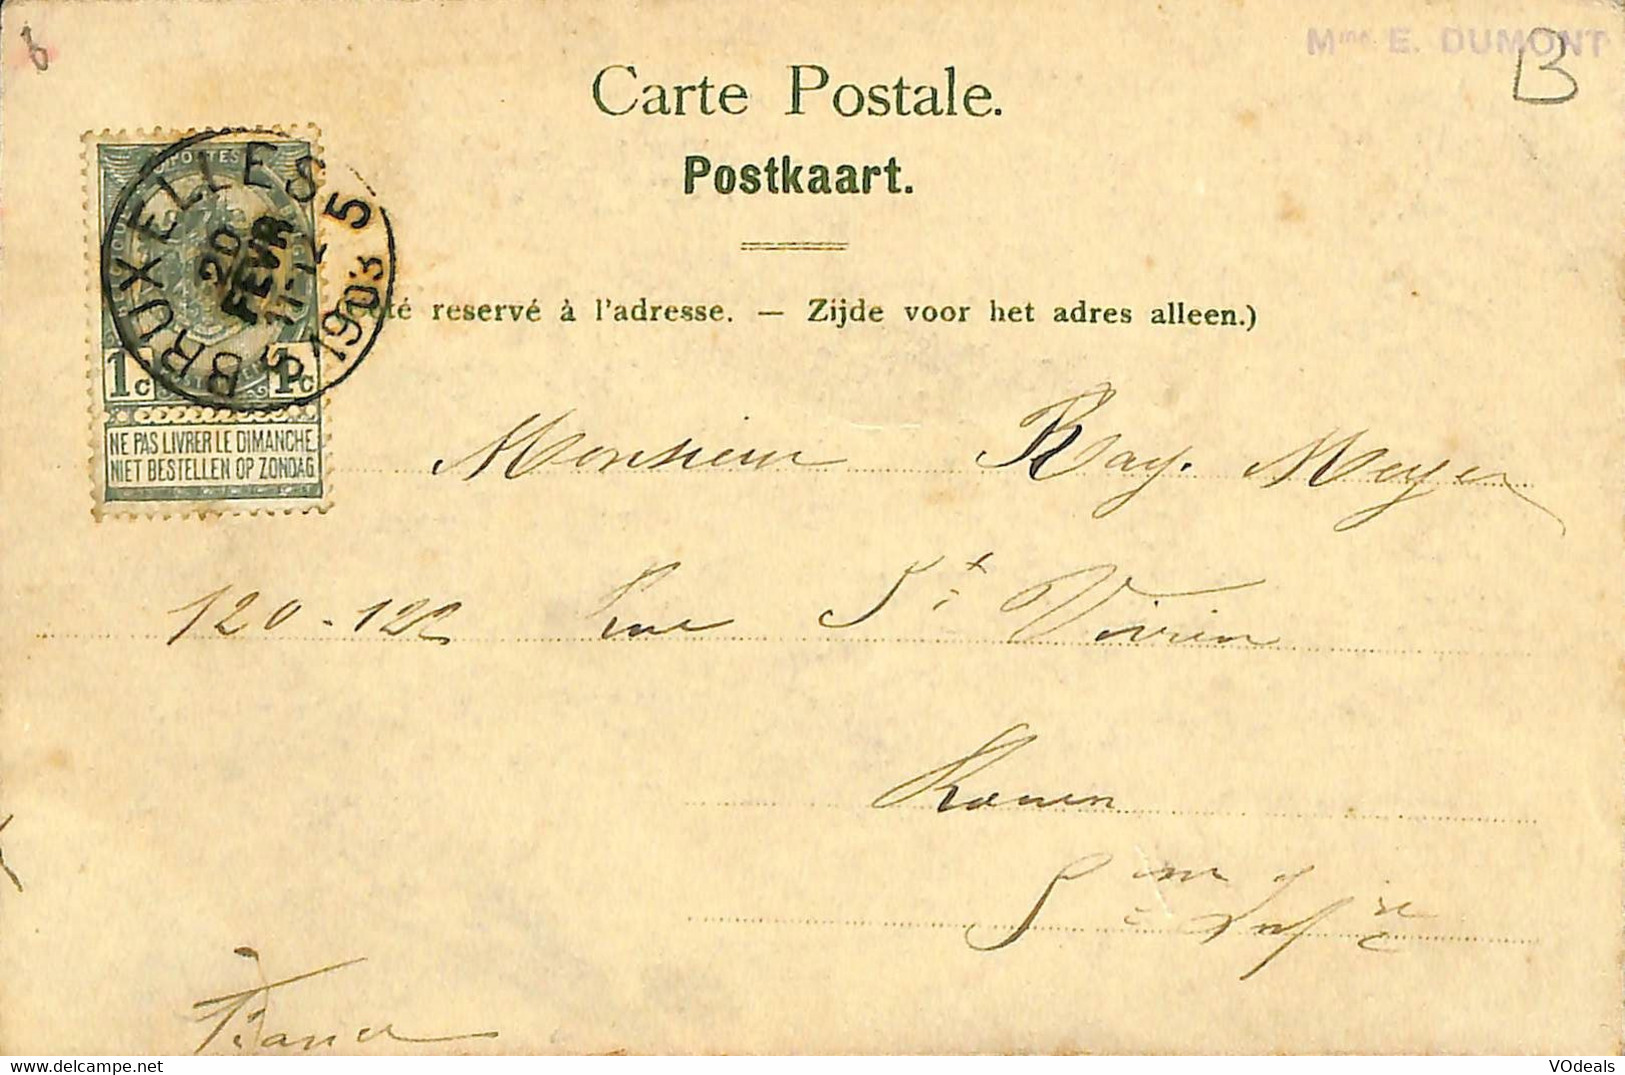 Mme E. DUMONT
B
Carte Postale.
Postkaart.
té reservé à l'adresse. — Zijde voor het adres alleen.)
BRUXELLES 5
20
FEVR
11-12
1903
1c 1c
NE PAS LIVRER LE DIMANCHE
NIET BESTELLEN OP ZONDAG
Monsieur Ray. Meyer
120-122 Rue St Vivien
Rouen
Sne Infre
France
VOdeals